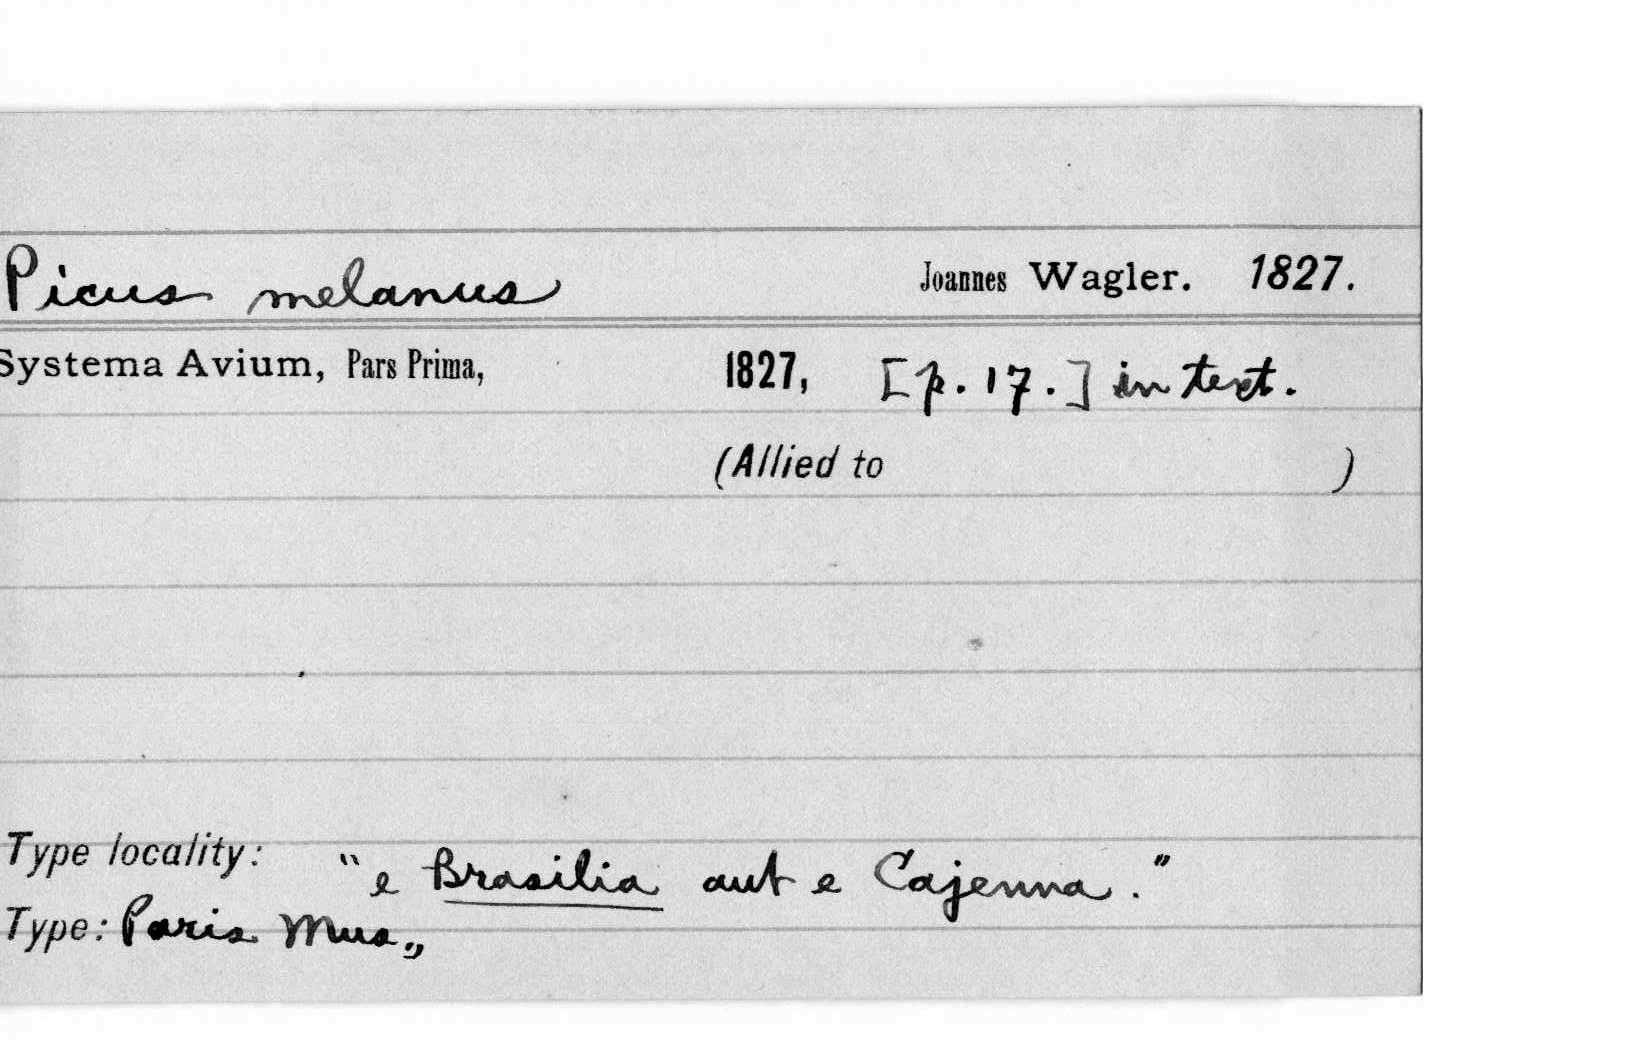 Picus melanus Joannes Wagler. 1827.
Systema Avium, Pars Prima, 1827, [p. 17.] in text.
(Allied to )
Type locality: "e Brasilia aut e Cajenna."
Type: Paris Mus.,